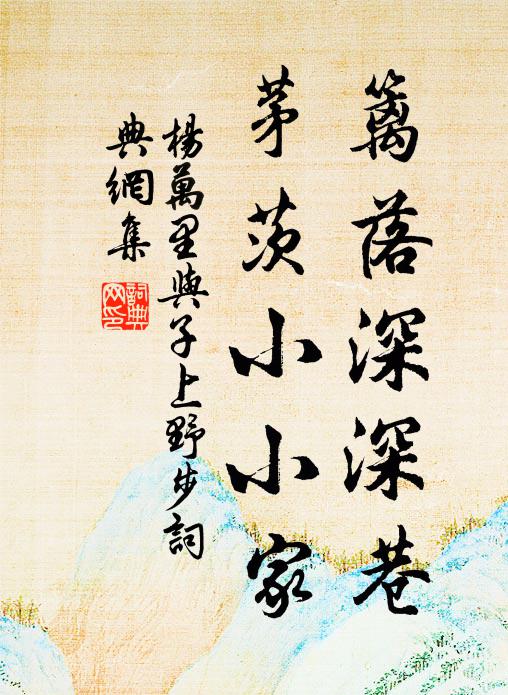 篱落深深巷
茅茨小小家
楊萬里與子上野步詞
典網集
詞典
网印